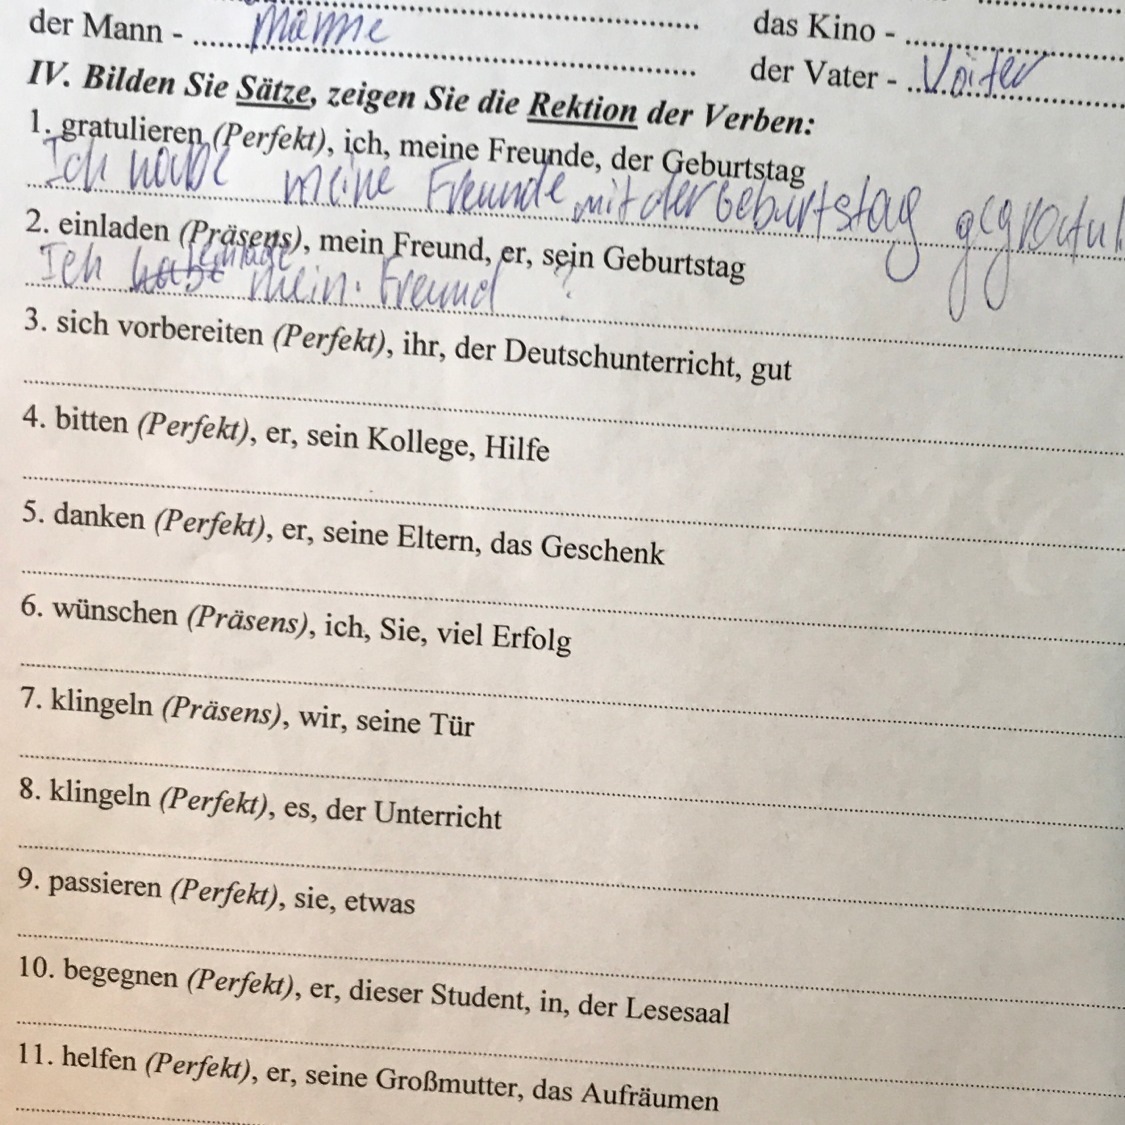 der Mann - Männe
das Kino -
der Vater - Väter
IV. Bilden Sie Sätze, zeigen Sie die Rektion der Verben:
1. gratulieren (Perfekt), ich, meine Freunde, der Geburtstag
Ich habe meine Freunde mit der Geburtstag gegratul
2. einladen (Präsens), mein Freund, er, sein Geburtstag
Ich einlade mein Freund ?
3. sich vorbereiten (Perfekt), ihr, der Deutschunterricht, gut
4. bitten (Perfekt), er, sein Kollege, Hilfe
5. danken (Perfekt), er, seine Eltern, das Geschenk
6. wünschen (Präsens), ich, Sie, viel Erfolg
7. klingeln (Präsens), wir, seine Tür
8. klingeln (Perfekt), es, der Unterricht
9. passieren (Perfekt), sie, etwas
10. begegnen (Perfekt), er, dieser Student, in, der Lesesaal
11. helfen (Perfekt), er, seine Großmutter, das Aufräumen